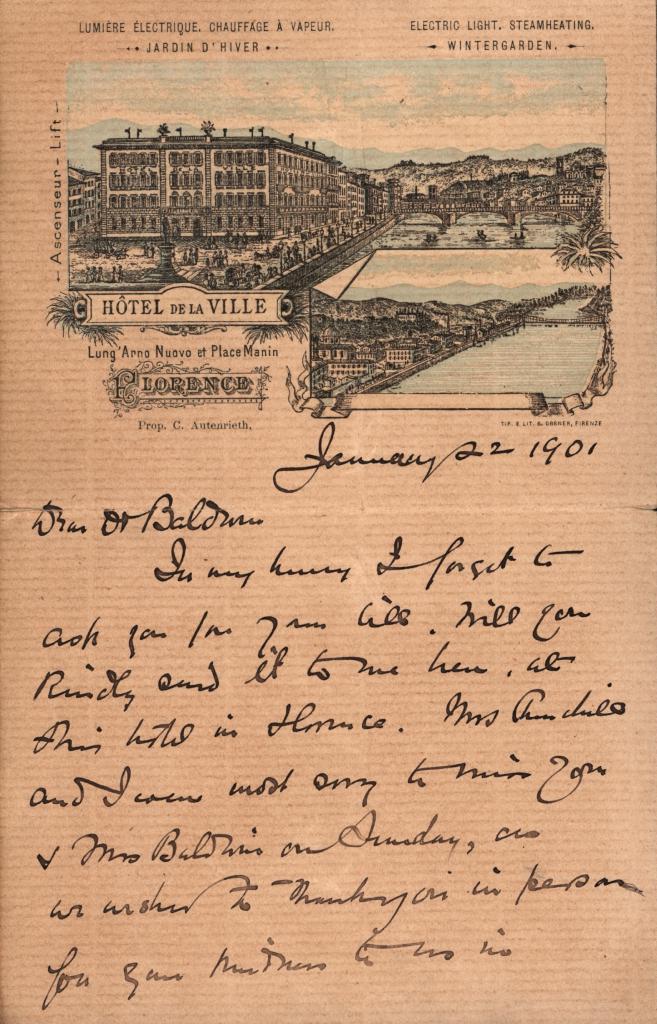 LUMIÈRE ÉLECTRIQUE. CHAUFFAGE À VAPEUR.
JARDIN D'HIVER
ELECTRIC LIGHT. STEAMHEATING.
WINTERGARDEN.
Ascenseur - Lift
HÔTEL DE LA VILLE
Lung'Arno Nuovo et Place Manin
FLORENCE
Prop. C. Autenrieth.
TIP. E LIT. G. GRENER, FIRENZE
January 22 1901
Dear Dr Baldwin
In my hurry I forgot to
ask you for your bill. Will you
kindly send it to me here, at
this hotel in Florence. Mrs Churchill
and I were most sorry to miss you
& Mrs Baldwin on Sunday, as
we wished to thank you in person
for your kindness to us in